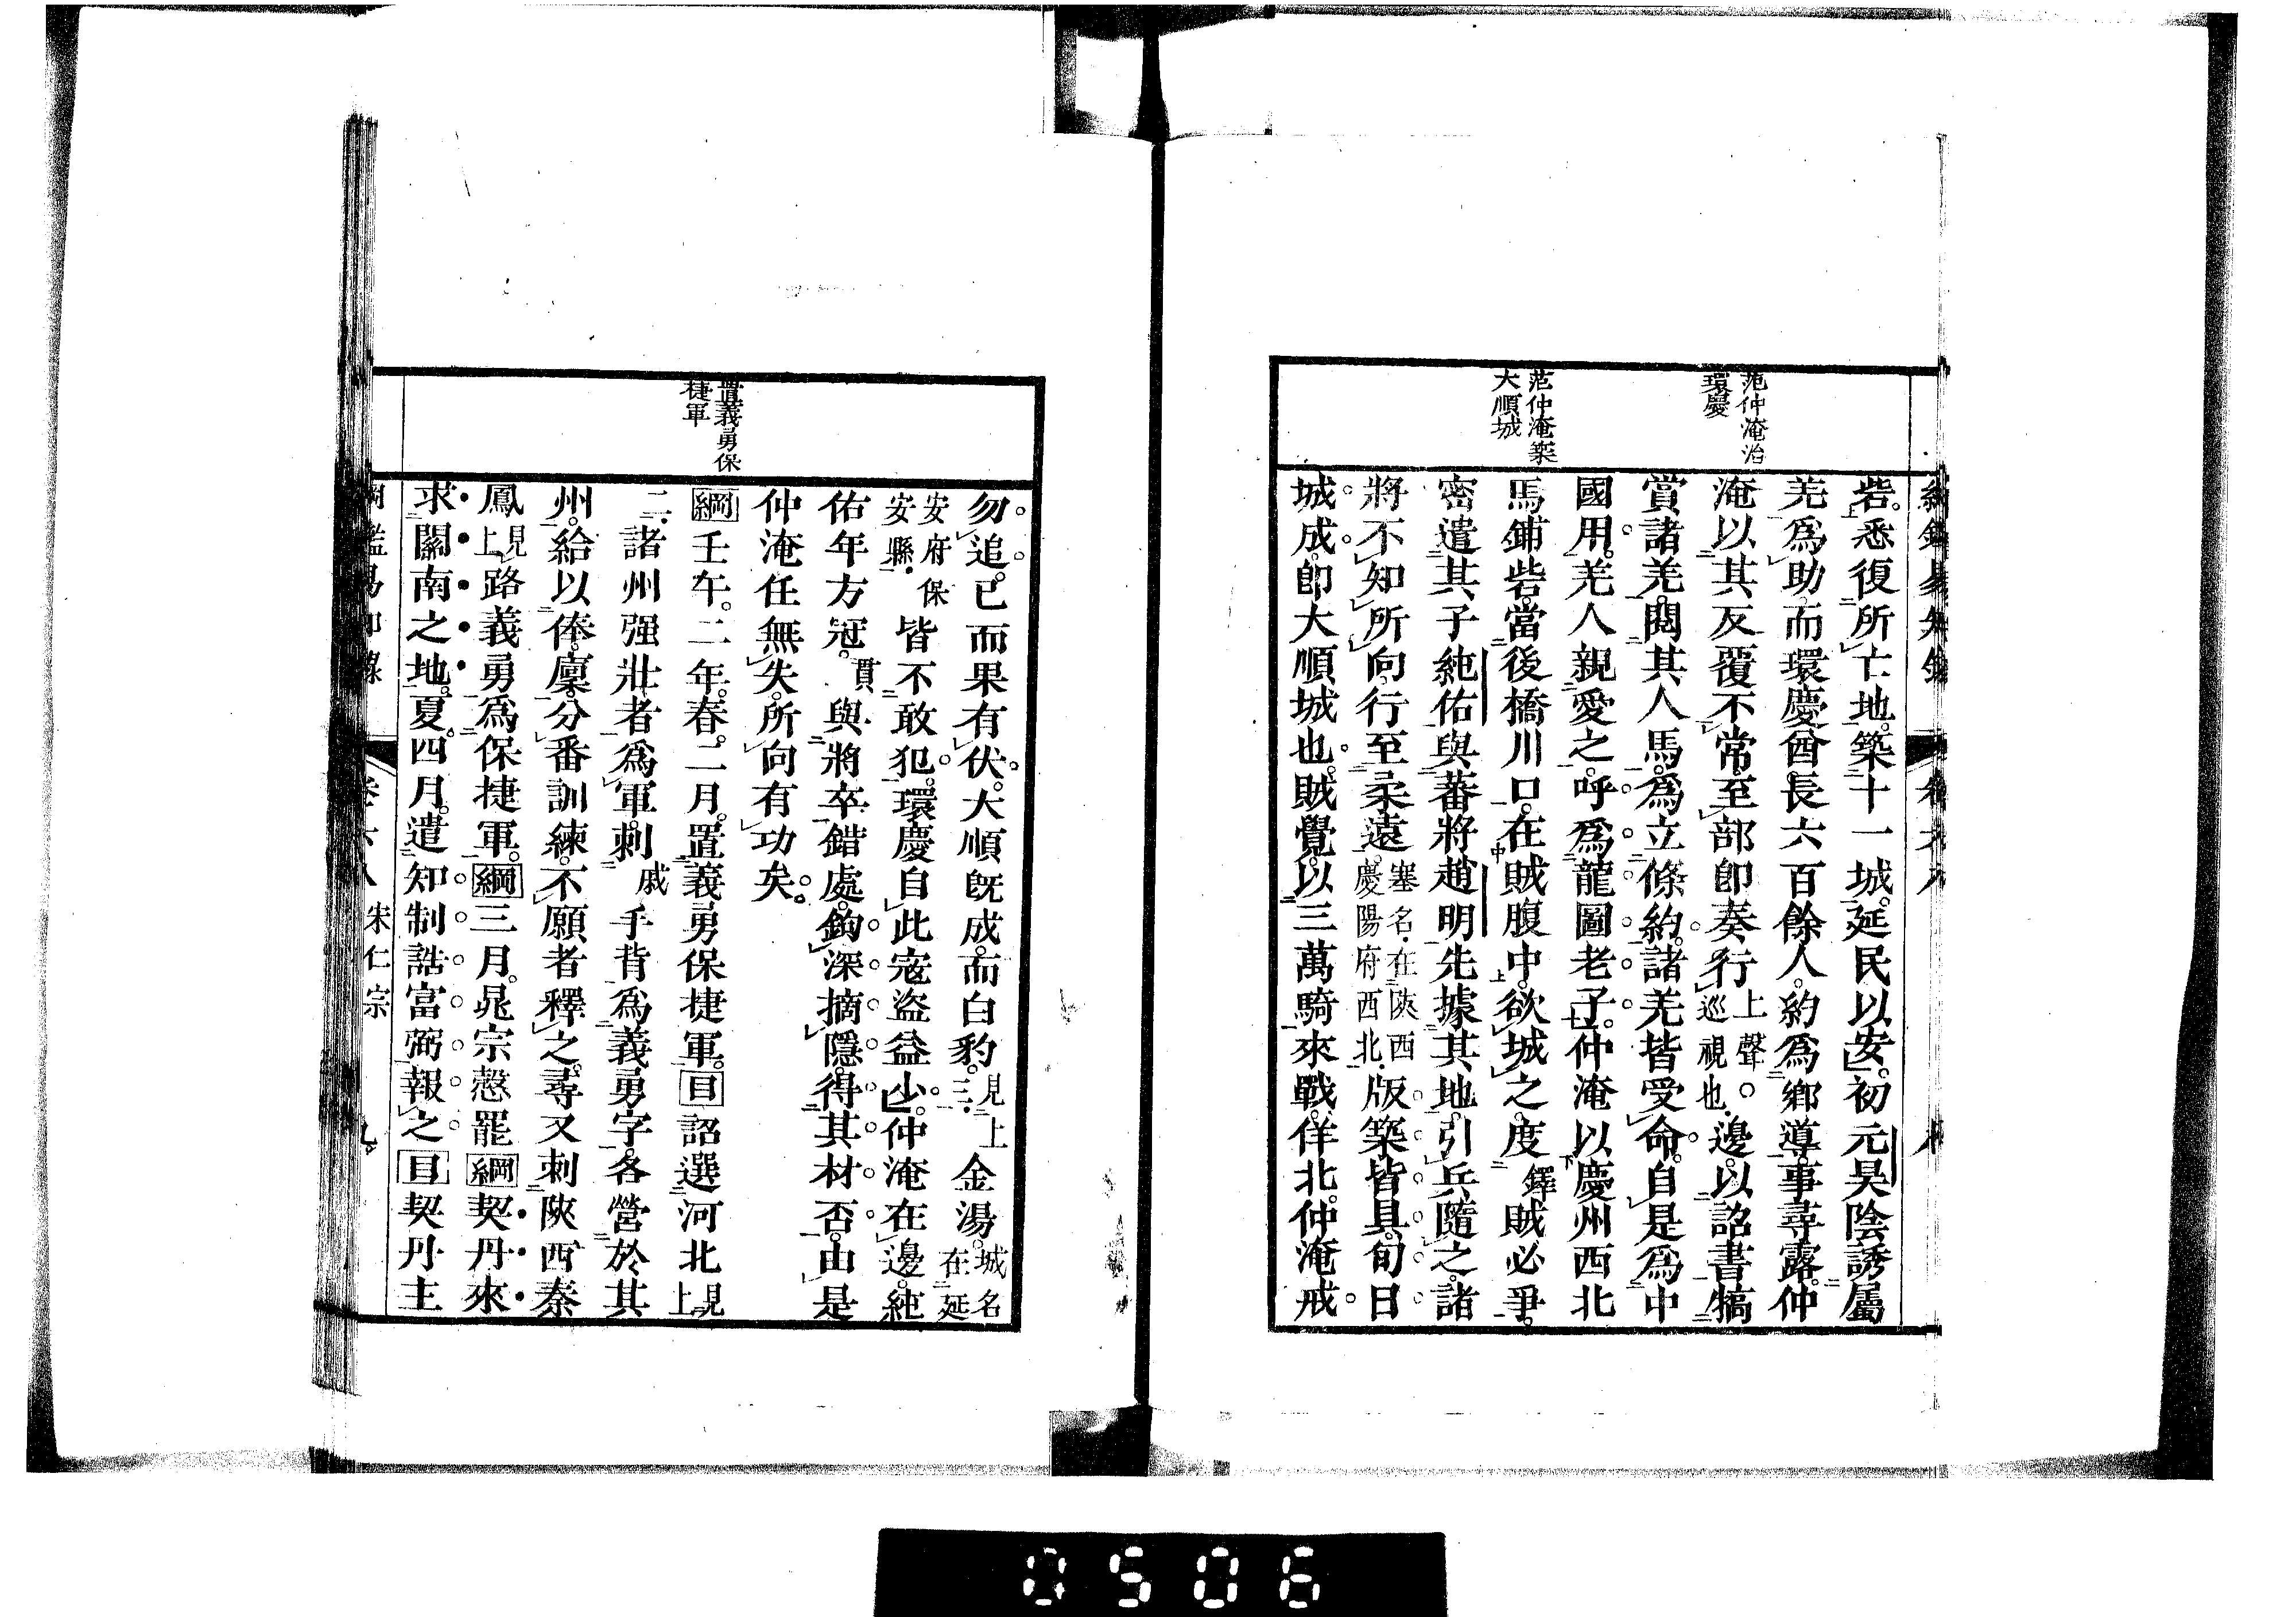 范仲淹治
環慶
范仲淹築
大順城
砦。悉復所亡地。築十一城。延民以安。初元昊陰誘屬
羌爲助。而環慶酋長六百餘人。約爲鄉導。事尋露。仲
淹以其反覆不常。至部卽奏行上聲○巡視也。邊。以詔書犒
賞諸羌。閱其人馬。爲立條約。諸羌皆受命。自是爲中
國用。羌人親愛之。呼爲龍圖老子。仲淹以慶州西北
馬鋪砦。當後橋川口。在賊腹中。欲城之。度鐸賊必爭。
密遣其子純佑與蕃將趙明先據其地。引兵隨之。諸
將不知所向。行至柔遠。塞名。在陝西慶陽府西北。版築皆具。旬日
城成。卽大順城也。賊覺。以三萬騎來戰。佯北。仲淹戒
置義勇保
捷軍
勿追。已而果有伏。大順旣成。而白豹。見上三。金湯。城名在延
安府保安縣。皆不敢犯。環慶自此寇盜益少。仲淹在邊。純
佑年方冠。貫與將卒錯處。鉤深摘隱。得其材否。由是
仲淹任無失。所向有功矣。
綱壬午。二年。春。二月。置義勇保捷軍。目詔選河北見上
二。諸州强壯者爲軍。刺戚手背爲義勇字。各營於其
州。給以俸廩。分番訓練。不願者釋之。尋又刺陝西秦
鳳見上路義勇爲保捷軍。綱三月。晁宗慤罷綱契丹來
求關南之地。夏。四月。遣知制誥富弼報之目契丹主
卷六八 宋仁宗 九
0506